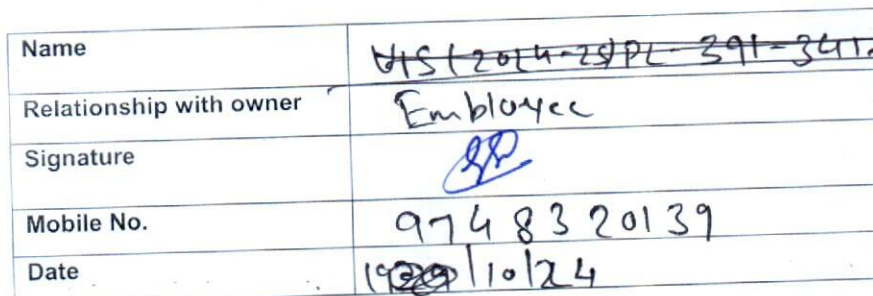 Name VIS(2024-25)PL-391-341
Relationship with owner Embloyee
Signature
Mobile No. 9748320139
Date 19/10/24